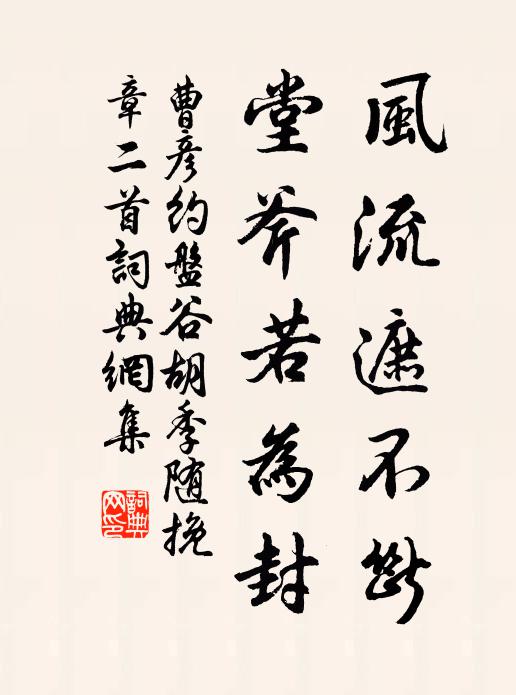 風流遮不斷
堂斧若為封
曹彥約盤谷胡季随挽
章二首詞典網集
詞典网印